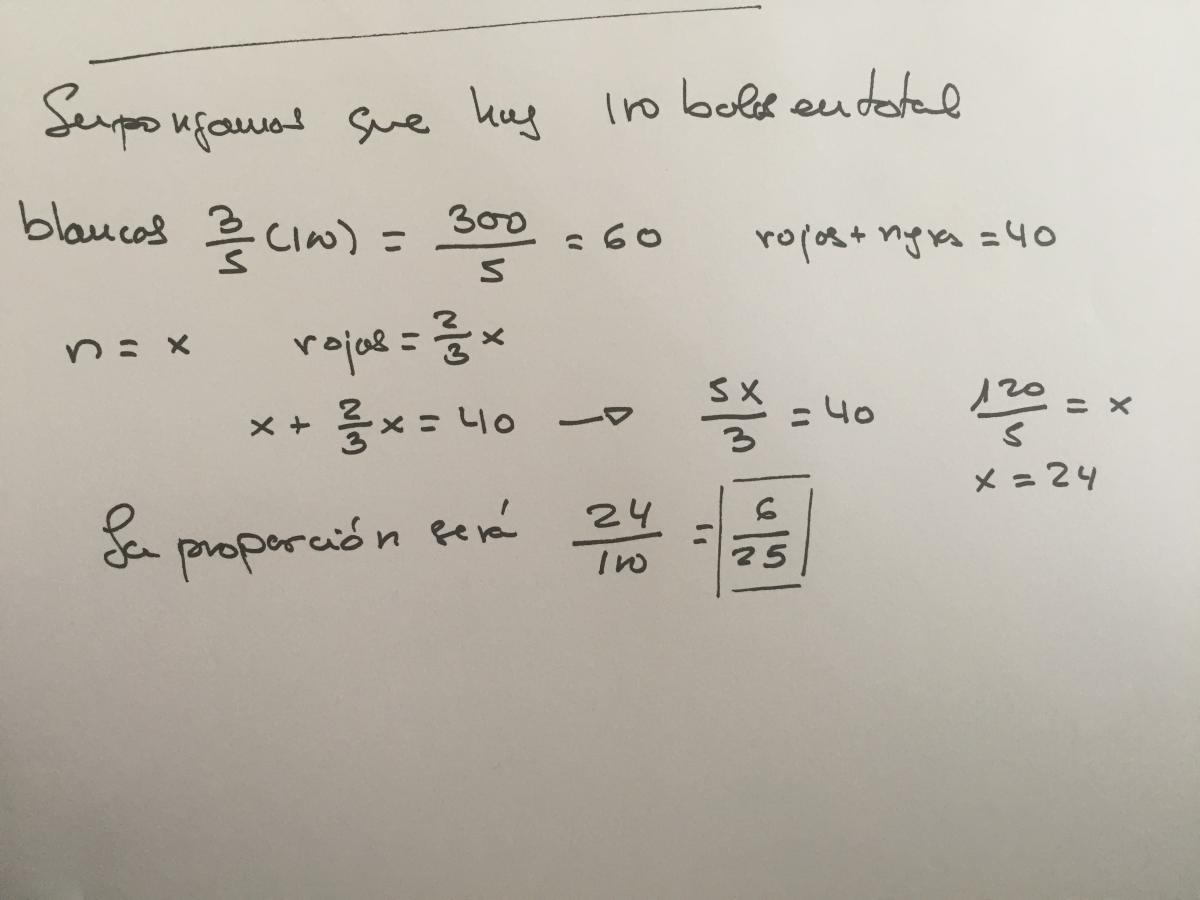 Supongamos que hay 100 bolas en total
blancas 3/5 (100) = 300/5 = 60 rojas + negras = 40
n = x rojas = 2/3 x
x + 2/3 x = 40 → 5x/3 = 40 120/5 = x
x = 24
La proporción será 24/100 = 6/25